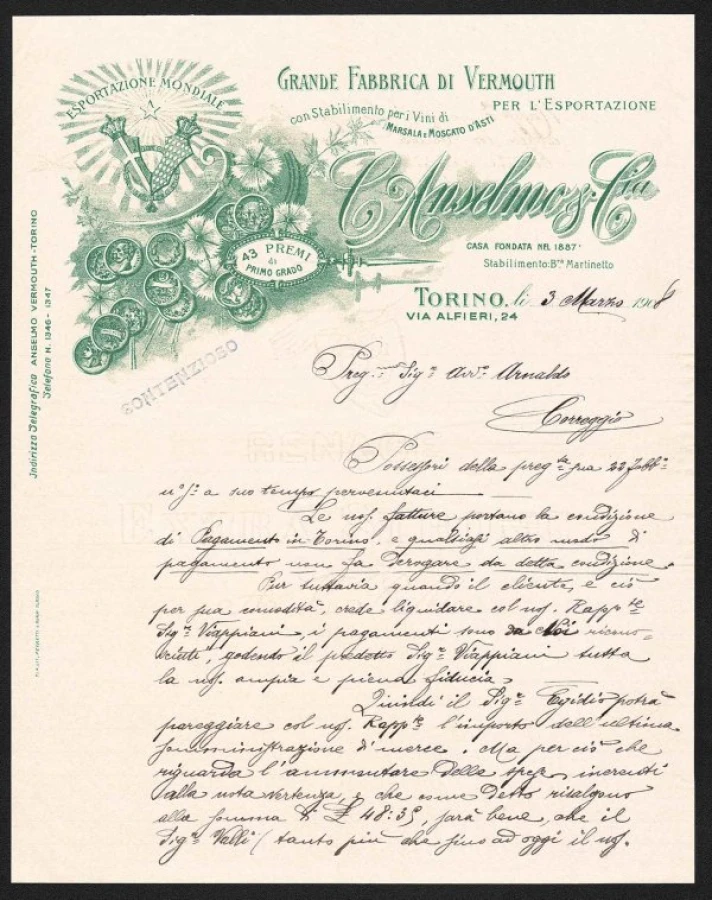 ESPORTAZIONE MONDIALE
GRANDE FABBRICA DI VERMOUTH
PER L'ESPORTAZIONE
con Stabilimento per i Vini di
MARSALA E MOSCATO D'ASTI
C. Anselmo & Cia
CASA FONDATA NEL 1887
Stabilimento: Bta Martinetto
43 PREMI
di
PRIMO GRADO
TORINO, li 3 Marzo 1908
VIA ALFIERI, 24
Indirizzo Telegrafico ANSELMO VERMOUTH-TORINO
Telefono N. 1346-1347
CONTENZIOSO
Preg. Sigr Avv. Arnaldo
Correggio
Possessori della preg. sua 22 Febb.
a suo tempo pervenutaci
Le nos. fatture portano la condizione
di Pagamento in Torino, e qualsiasi altro modo di
pagamento non fa derogare da detta condizione.
Pur tuttavia quando il cliente, e ciò
per sua comodità, crede liquidare col nos. Rappte
Sigr Viappiani, i pagamenti sono da Noi ricono=
sciuti, godendo il predetto Sigr Viappiani tutta
la nos. ampia e piena fiducia.
Quindi il Sigr Egidio potrà
pareggiare col nos. Rappte l'importo dell'ultima
somministrazione di merce. Ma per ciò che
riguarda l'ammontare delle spese inerenti
alla nota vertenza, e che come detto risalgono
alla somma di £ 48:35, sarà bene, che il
Sigr Valli (tanto più che fino ad oggi il nos.